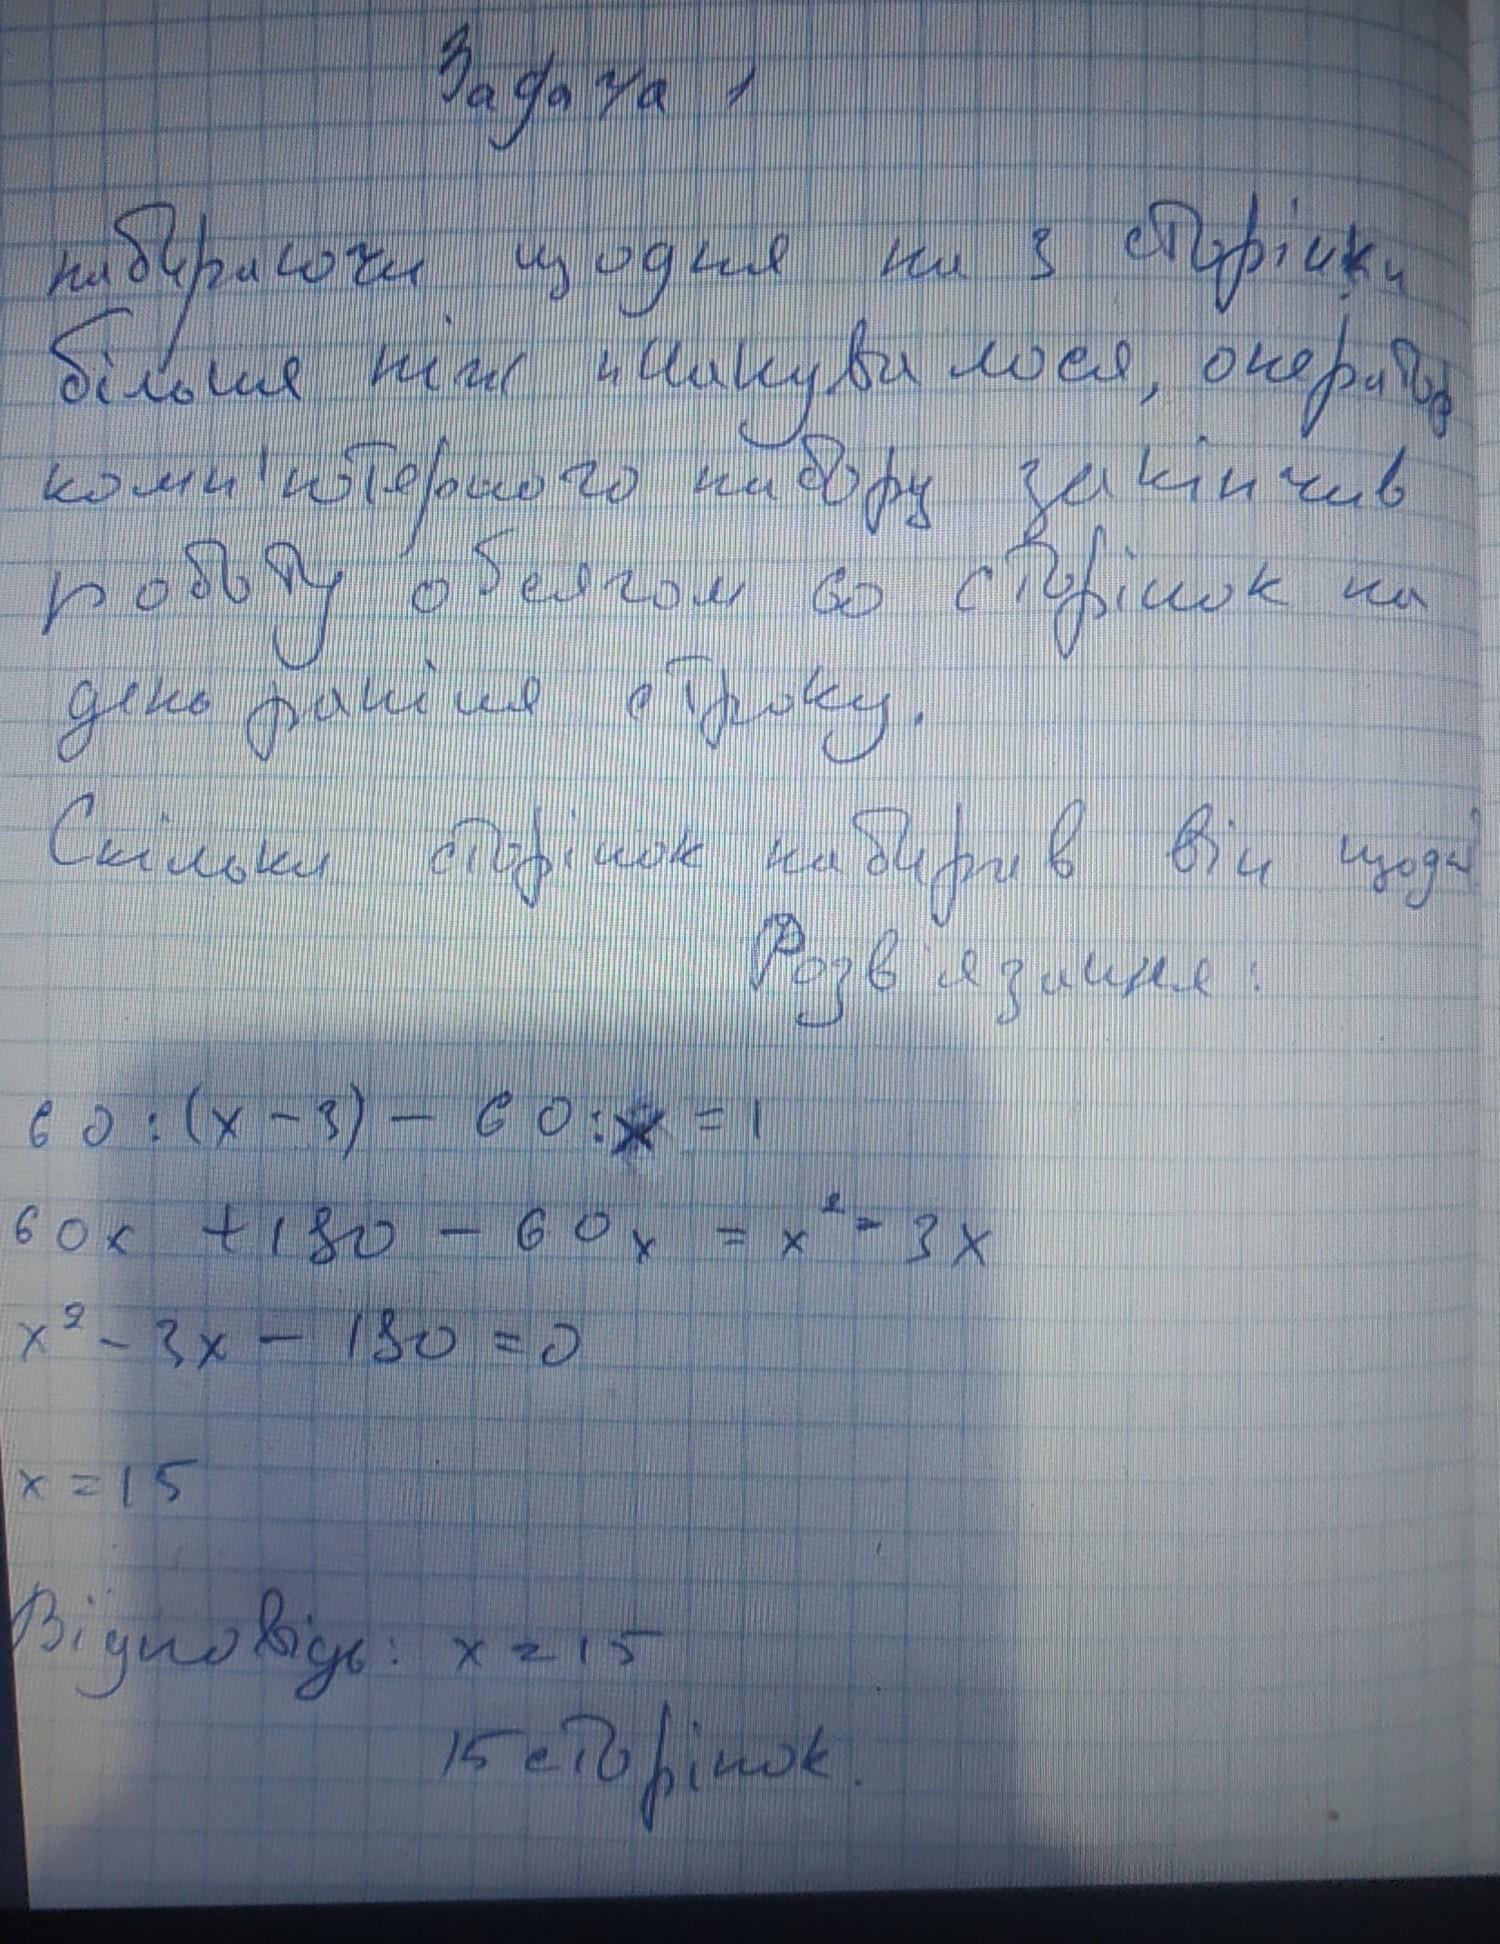 Задача 1
набираючи щодня на 3 сторінки
більше ніж планувалося, оператор
комп'ютерного набору закінчив
роботу обсягом 60 сторінок на
день раніше строку.
Скільки сторінок набирав він щодн
Розв'язання:
60:(x-3)-60:x=1
60x+180-60x=x²-3x
x²-3x-180=0
x=15
Відповідь: x=15
15 сторінок.